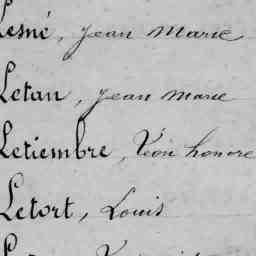 Lesné, Jean Marie
Letan, Jean Marie
Letiembre, Léon honoré
Letort, Louis